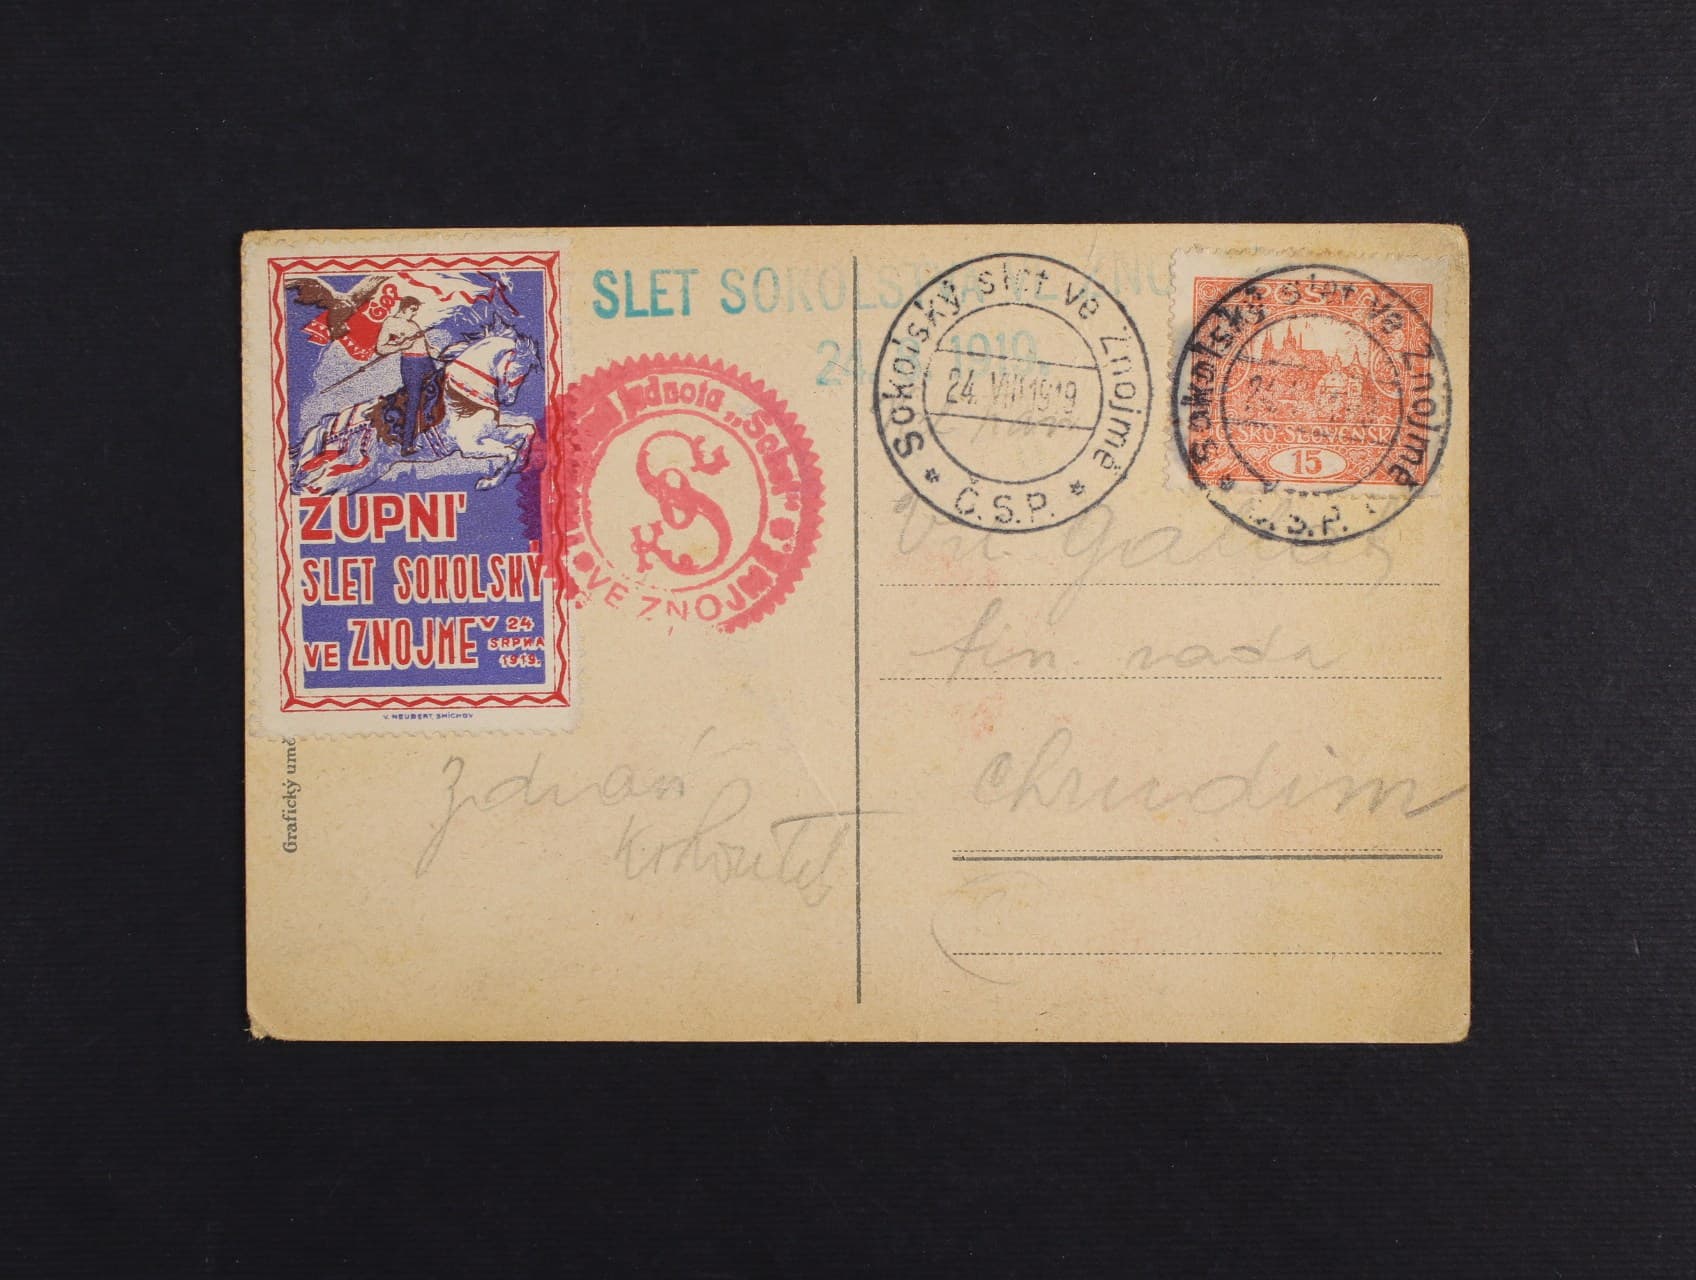 ŽUPNÍ
SLET SOKOLSKÝ
VE ZNOJMĚ V 24
SRPNA
1919.
V. NEUBERT, SMÍCHOV
Grafický umě
SLET SOKOLSTVA VE ZNO
24. 1919.
jednota „Sokol"
VE ZNOJMĚ
SOKOL
Sokolský slet ve Znojmě
24. VIII 1919
* Č.S.P. *
Sokolský slet ve Znojmě
Č.S.P.
POŠTA
ČESKO-SLOVENSKÁ
15
fin. rada
Chrudim
Zdraví
Kohoutek